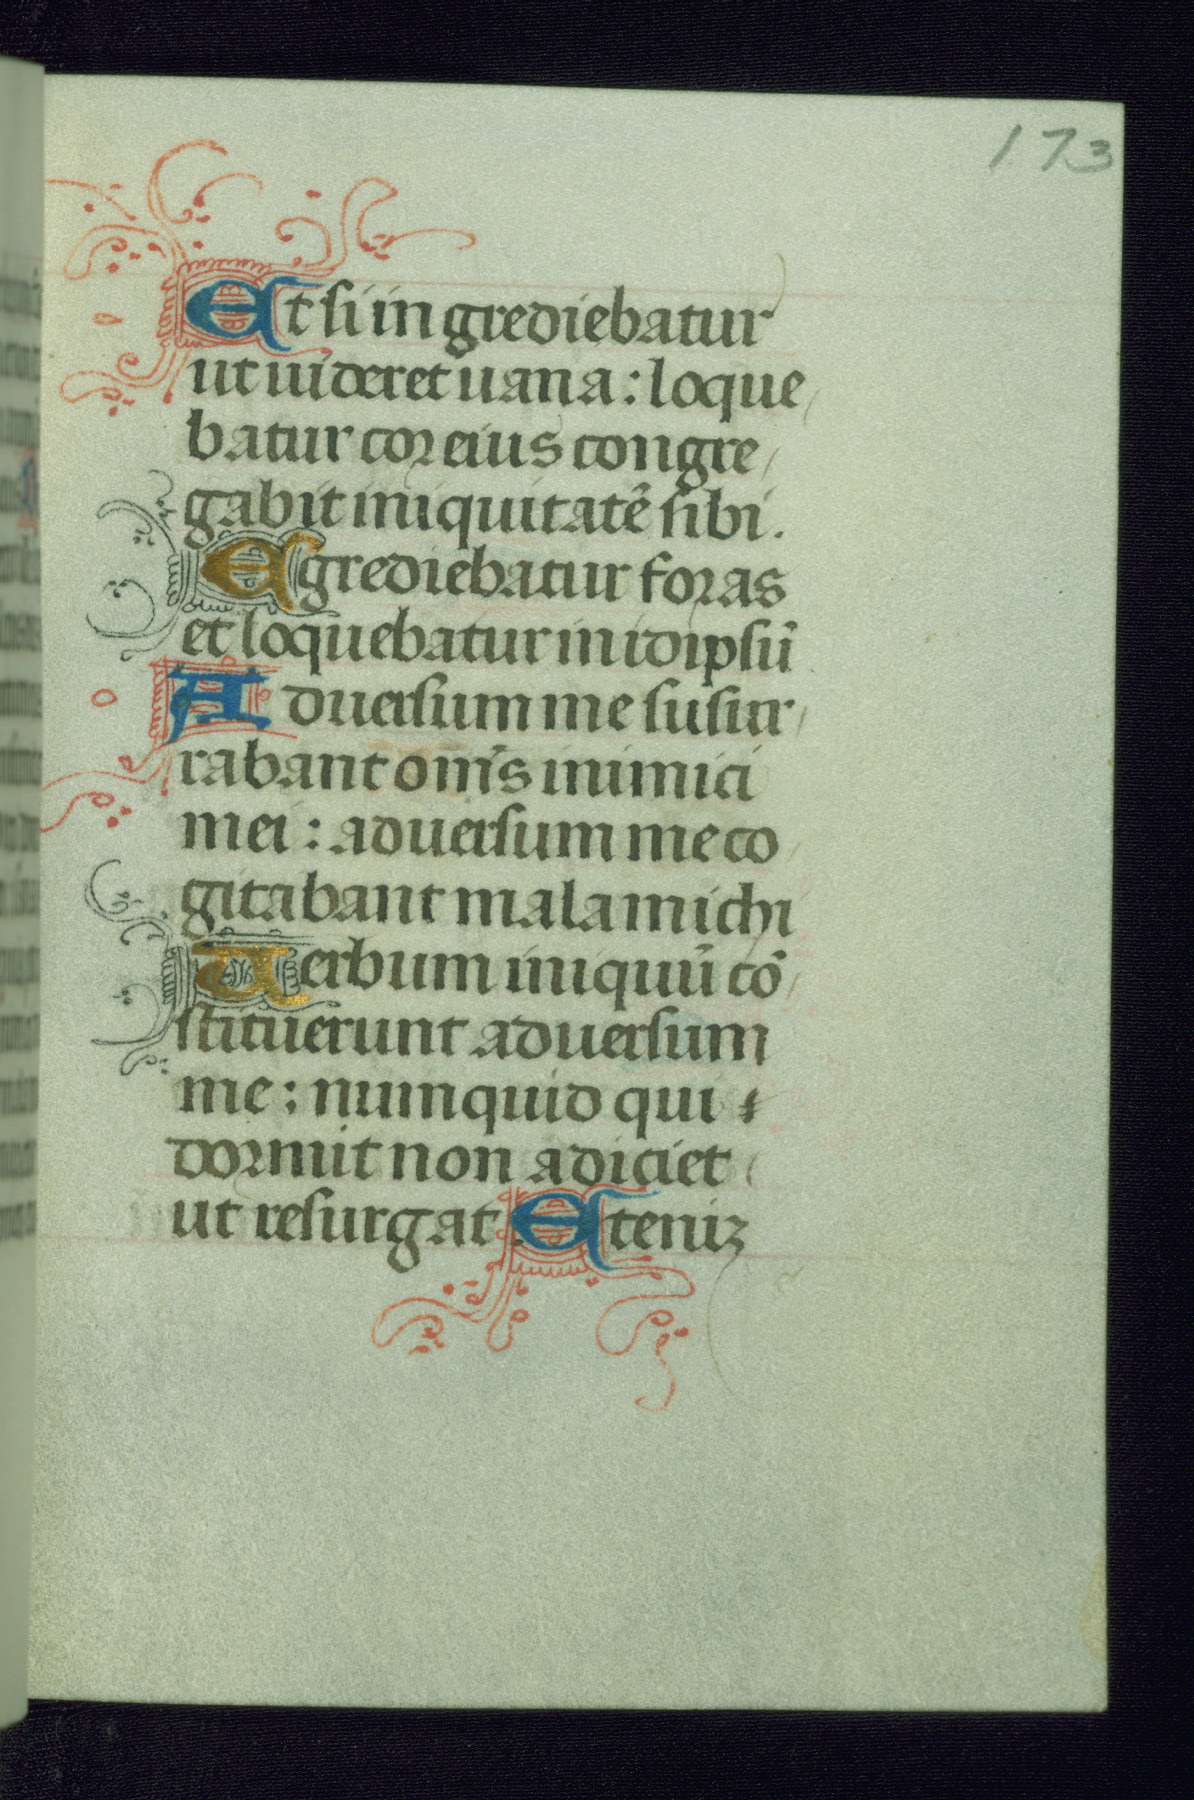 173
Et si ingrediebatur
ut uideret uana : loque
batur cor eius congre
gabit iniquitatē sibi.
Egrediebatur foras
et loquebatur in idipsū
Aduersum me susur
rabant om̄s inimici
mei : aduersum me co
gitabant mala michi
Uerbum iniquū cō
stituerunt aduersum
me : numquid qui
dormit non adiciet
ut resurgat Eteniꝫ